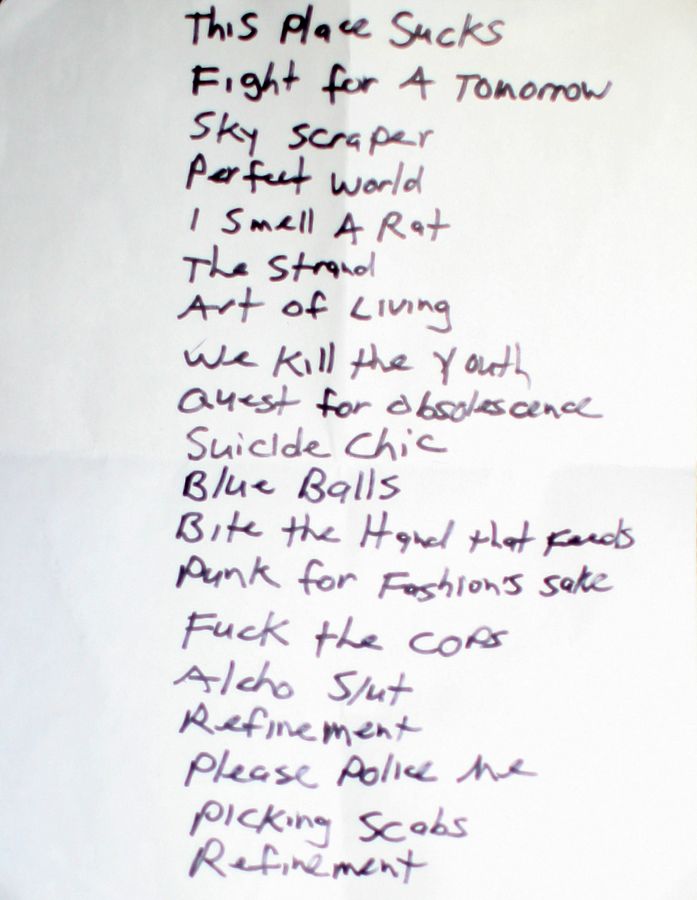 This Place Sucks
Fight for A Tomorrow
Sky scraper
Perfect World
I Smell A Rat
The Strand
Art of Living
We Kill the Youth
Quest for obsolescence
Suicide Chic
Blue Balls
Bite the Hand that Feeds
Punk for Fashion's sake
Fuck the COPS
Alcho Slut
Refinement
Please Police Me
Picking Scabs
Refinement